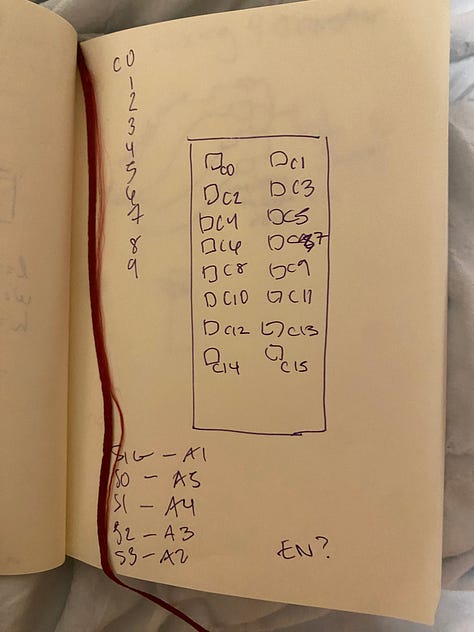 C0
1
2
3
4
5
6
7
8
9
C0 C1
C2 C3
C4 C5
C6 C7
C8 C9
C10 C11
C12 C13
C14 C15
SIG - A1
S0 - A5
S1 - A4
S2 - A3
S3 - A2
EN?